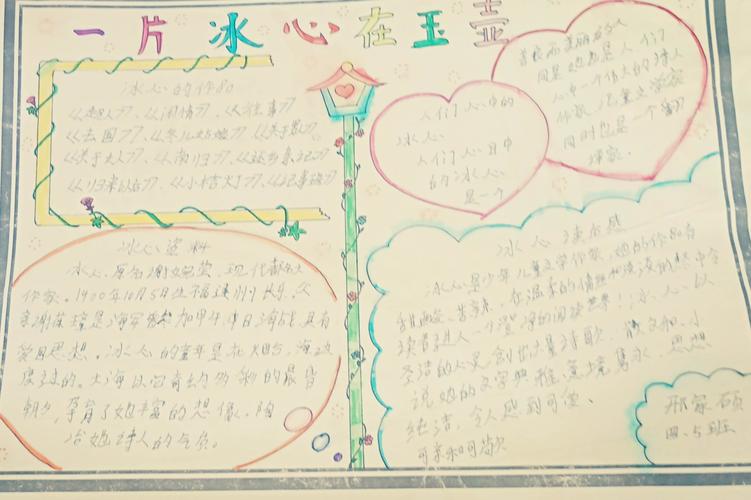 一片冰心在玉壶
冰心的作品
《超人》、《闲情》、《往事》
《去国》、《冬儿姑娘》、《关于男人》
《关于女人》、《南归》、《还乡杂记》
《归来以后》、《小桔灯》、《记事珠》
人们心中的
冰心
人们心目中
的冰心
是一个
善良而美丽的人
同是她也是人们
心中一个伟大的诗人
作家,儿童文学家
同时也是一个翻
译家。
冰心资料
冰心,原名谢婉莹,现代著名女
作家。1900年10月5日生福建福州长乐,父
亲谢葆璋是海军,参加甲午中日海战,具有
爱国思想。冰心的童年是在烟台,海边
度过的。大海以它奇幻多彩的晨昏
朝夕,孕育了她丰富的想像,陶
冶她诗人的气质。
冰心读后感
冰心是少年儿童文学作家,她的作品有
甜酸、苦辣,在温柔的情
读者进入一个澄净的阅读世界!冰心以
圣洁的心灵,创出大量诗歌、散文和小
说她的文字典雅,意境隽永,思想
纯洁,令人感到可爱、
可亲和可敬
邢家硕
四、5班